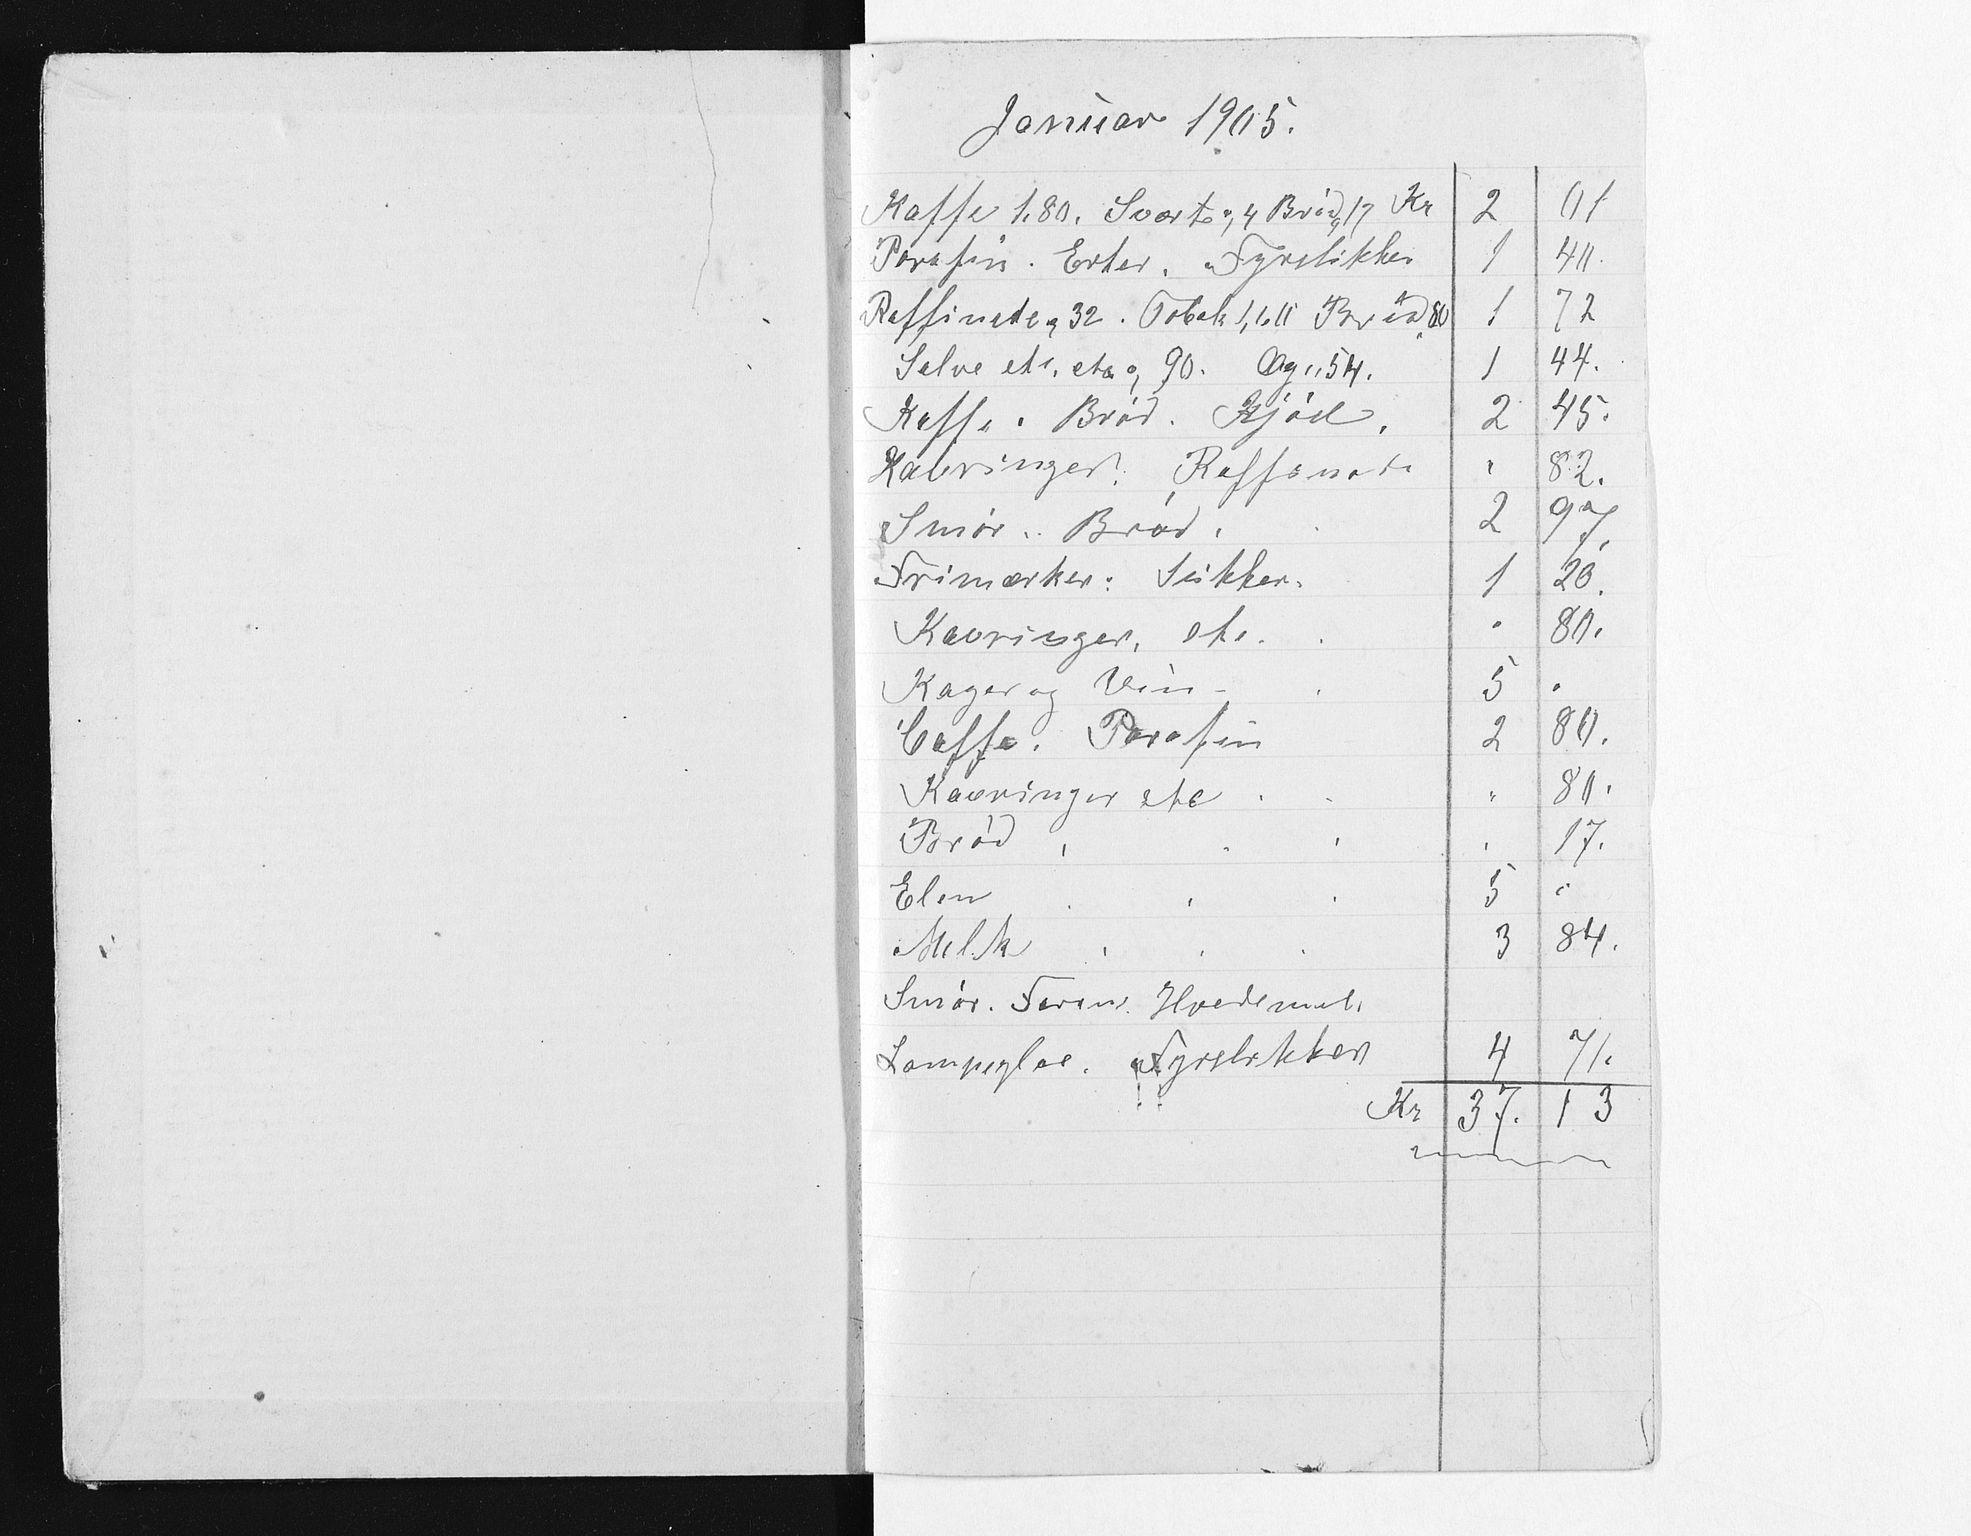 Januar 1905.
Kaffe 1.80. Sværte „ 4 Brød „ 17 Kr 2 01
Parafin. Erter. Fyrstikker 1 40.
Raffinade „ 32. Tobak 1,1.60 Brød 80 1 72
Salve etc. etc „ 90. Og „ 54. 1 44.
Kaffe. Brød. Kjød. 2 45.
Kavringer. Raffinade „ 82.
Smør. Brød. 2 97.
Frimærker. Sukker. 1 20.
Kavringer, etc. „ 80.
Kager og Vin - 5 „
Caffe. Parafin 2 80.
Kavringer etc „ 80.
Brød „ 17.
Elen 5 „
Melk 3 84.
Smør. Hvedemel.
Lampeglas. Fyrstikker 4 71.
Kr 37. 13